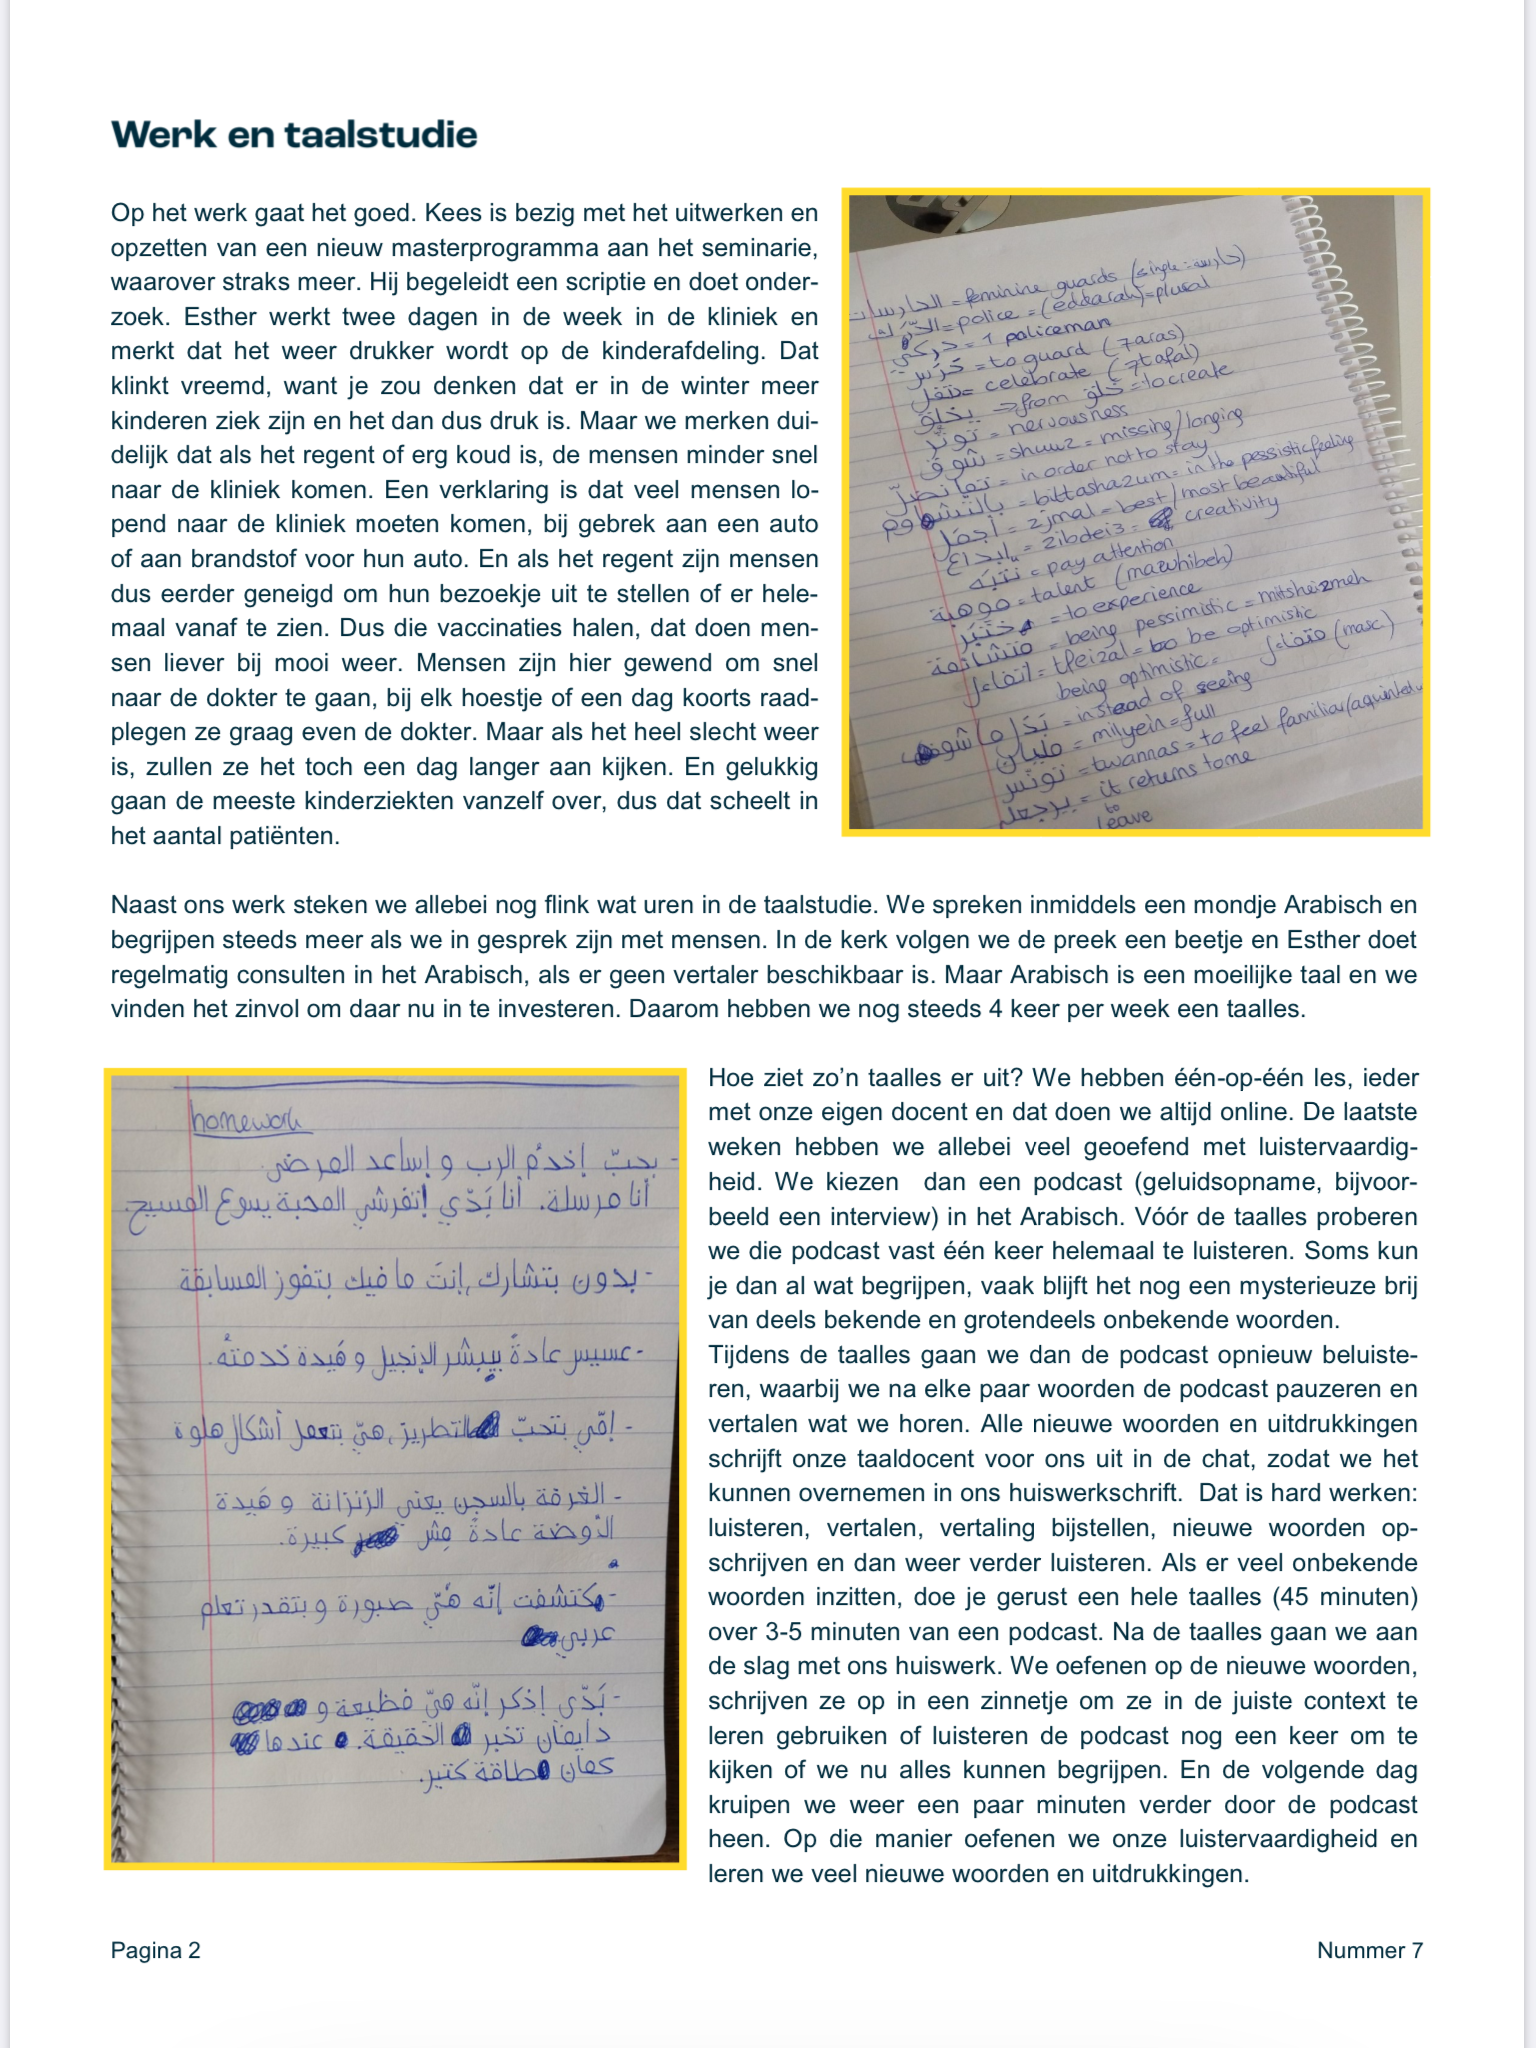 Werk en taalstudie
Op het werk gaat het goed. Kees is bezig met het uitwerken en
opzetten van een nieuw masterprogramma aan het seminarie,
waarover straks meer. Hij begeleidt een scriptie en doet onder-
zoek. Esther werkt twee dagen in de week in de kliniek en
merkt dat het weer drukker wordt op de kinderafdeling. Dat
klinkt vreemd, want je zou denken dat er in de winter meer
kinderen ziek zijn en het dan dus druk is. Maar we merken dui-
delijk dat als het regent of erg koud is, de mensen minder snel
naar de kliniek komen. Een verklaring is dat veel mensen lo-
pend naar de kliniek moeten komen, bij gebrek aan een auto
of aan brandstof voor hun auto. En als het regent zijn mensen
dus eerder geneigd om hun bezoekje uit te stellen of er hele-
maal vanaf te zien. Dus die vaccinaties halen, dat doen men-
sen liever bij mooi weer. Mensen zijn hier gewend om snel
naar de dokter te gaan, bij elk hoestje of een dag koorts raad-
plegen ze graag even de dokter. Maar als het heel slecht weer
is, zullen ze het toch een dag langer aan kijken. En gelukkig
gaan de meeste kinderziekten vanzelf over, dus dat scheelt in
het aantal patiënten.
الحارسات = feminine guards (single = حارسة)
الدّرك = police = (eddarah) = plural
دركي = 1 policeman
حَرَس = to guard (7aras)
= celebrate (7tafal)
يخلق => from خلق = to create
توتّر = nervousness
شوق = shuuz = missing/longing
تما نضلّ = in order not to stay
بالتشاؤم = bittashazum = in the pessistic feeling
أجمَل = zjmal = best/most beautiful
إبداع = zibdei3 = creativity
نتبَه = pay attention
موهبة = talent (mawhibeh)
ختَبَر = to experience
متشائمة = being pessimistic = mitsheizmeh
اتفاءل = tfeizal = to be optimistic
being optimistic = متفاءل (masc.)
بَدَل ما شوف = instead of seeing
مليان = milyein = full
تونّس = twannas = to feel familiar
يرجعلي = it returns to me
to
leave
Naast ons werk steken we allebei nog flink wat uren in de taalstudie. We spreken inmiddels een mondje Arabisch en
begrijpen steeds meer als we in gesprek zijn met mensen. In de kerk volgen we de preek een beetje en Esther doet
regelmatig consulten in het Arabisch, als er geen vertaler beschikbaar is. Maar Arabisch is een moeilijke taal en we
vinden het zinvol om daar nu in te investeren. Daarom hebben we nog steeds 4 keer per week een taalles.
homework
- بحبّ إخدُم الرب و إساعد المرضى
أنا مرسلة. أنا بَدّي المحبة يسوع المسيح.
- بدون بتشارك, إنتَ ما فيك بتفوز المسابقة
- عسيس عادةً بيبشر الإنجيل و هَيدة خدمتهُ.
- إمّي بتحبّ التطريز, هيّ بتعمل أشكال حلوة
- الغرفة بالسجن يعني الزنزانة و هَيدة
الأوضة عادةً مِش كبيرة.
- كتشفت إنّه هيّ صبورة و بتقدر تعلم
عربي
- بَدّي إذكر إنّه هيّ فظيعة و
دايمًان تخبر الحقيقة. عندها
كمان طاقة كتير.
Hoe ziet zo’n taalles er uit? We hebben één-op-één les, ieder
met onze eigen docent en dat doen we altijd online. De laatste
weken hebben we allebei veel geoefend met luistervaardig-
heid. We kiezen dan een podcast (geluidsopname, bijvoor-
beeld een interview) in het Arabisch. Vóór de taalles proberen
we die podcast vast één keer helemaal te luisteren. Soms kun
je dan al wat begrijpen, vaak blijft het nog een mysterieuze brij
van deels bekende en grotendeels onbekende woorden.
Tijdens de taalles gaan we dan de podcast opnieuw beluiste-
ren, waarbij we na elke paar woorden de podcast pauzeren en
vertalen wat we horen. Alle nieuwe woorden en uitdrukkingen
schrijft onze taaldocent voor ons uit in de chat, zodat we het
kunnen overnemen in ons huiswerkschrift. Dat is hard werken:
luisteren, vertalen, vertaling bijstellen, nieuwe woorden op-
schrijven en dan weer verder luisteren. Als er veel onbekende
woorden inzitten, doe je gerust een hele taalles (45 minuten)
over 3-5 minuten van een podcast. Na de taalles gaan we aan
de slag met ons huiswerk. We oefenen op de nieuwe woorden,
schrijven ze op in een zinnetje om ze in de juiste context te
leren gebruiken of luisteren de podcast nog een keer om te
kijken of we nu alles kunnen begrijpen. En de volgende dag
kruipen we weer een paar minuten verder door de podcast
heen. Op die manier oefenen we onze luistervaardigheid en
leren we veel nieuwe woorden en uitdrukkingen.
Pagina 2
Nummer 7